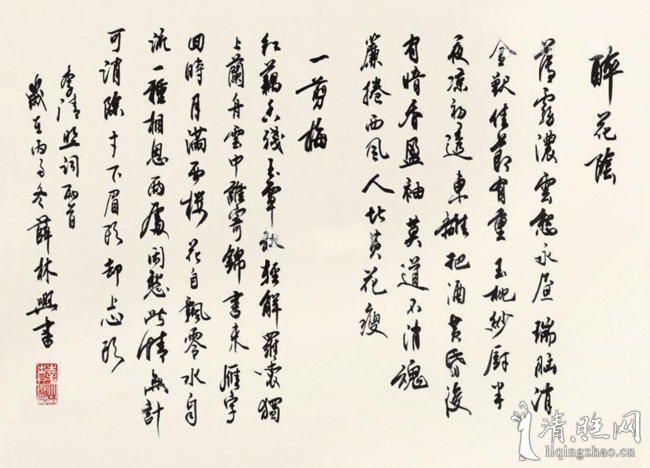 醉花陰
薄霧濃雲愁永晝瑞腦消
金獸佳節有重玉枕紗厨半
夜凉初透東籬把酒黄昏後
有暗香盈袖莫道不消魂
簾捲西風人比黄花瘦
一剪梅
紅藕香殘玉簟秋輕解羅裳獨
上蘭舟雲中誰寄錦書來雁字
回時月滿西樓花自飄零水自
流一種相思兩處閑愁此情無計
可消除才下眉頭却上心頭
李清照詞兩首
歲在丙子冬薛林興書
清照网
liqingzhao.cn